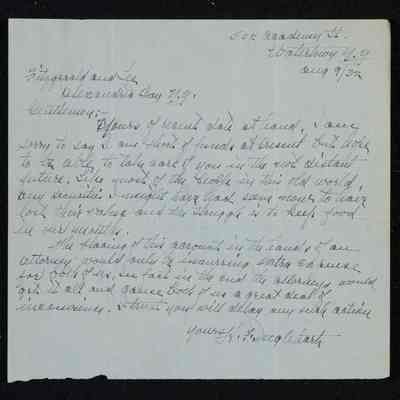 Academy St.
Watertown N.Y.
Aug 9/32
Fitzgerald and Lee
Alexandria Bay N.Y.
Gentlemen:-
Yours of recent date at hand, I am
sorry to say I am short of funds at present but hope
to be able to take care of you in the not distant
future. Like most of the people in this old world,
any securities I might have had seem now to have
lost their value and the struggle is to keep food
in our mouths.
The placing of this account in the hands of an
attorney would only be incurring extra expense
for both of us, in fact in the end the attorneys would
get it all and cause both of us a great deal of
I trust you will delay any such action
Yours